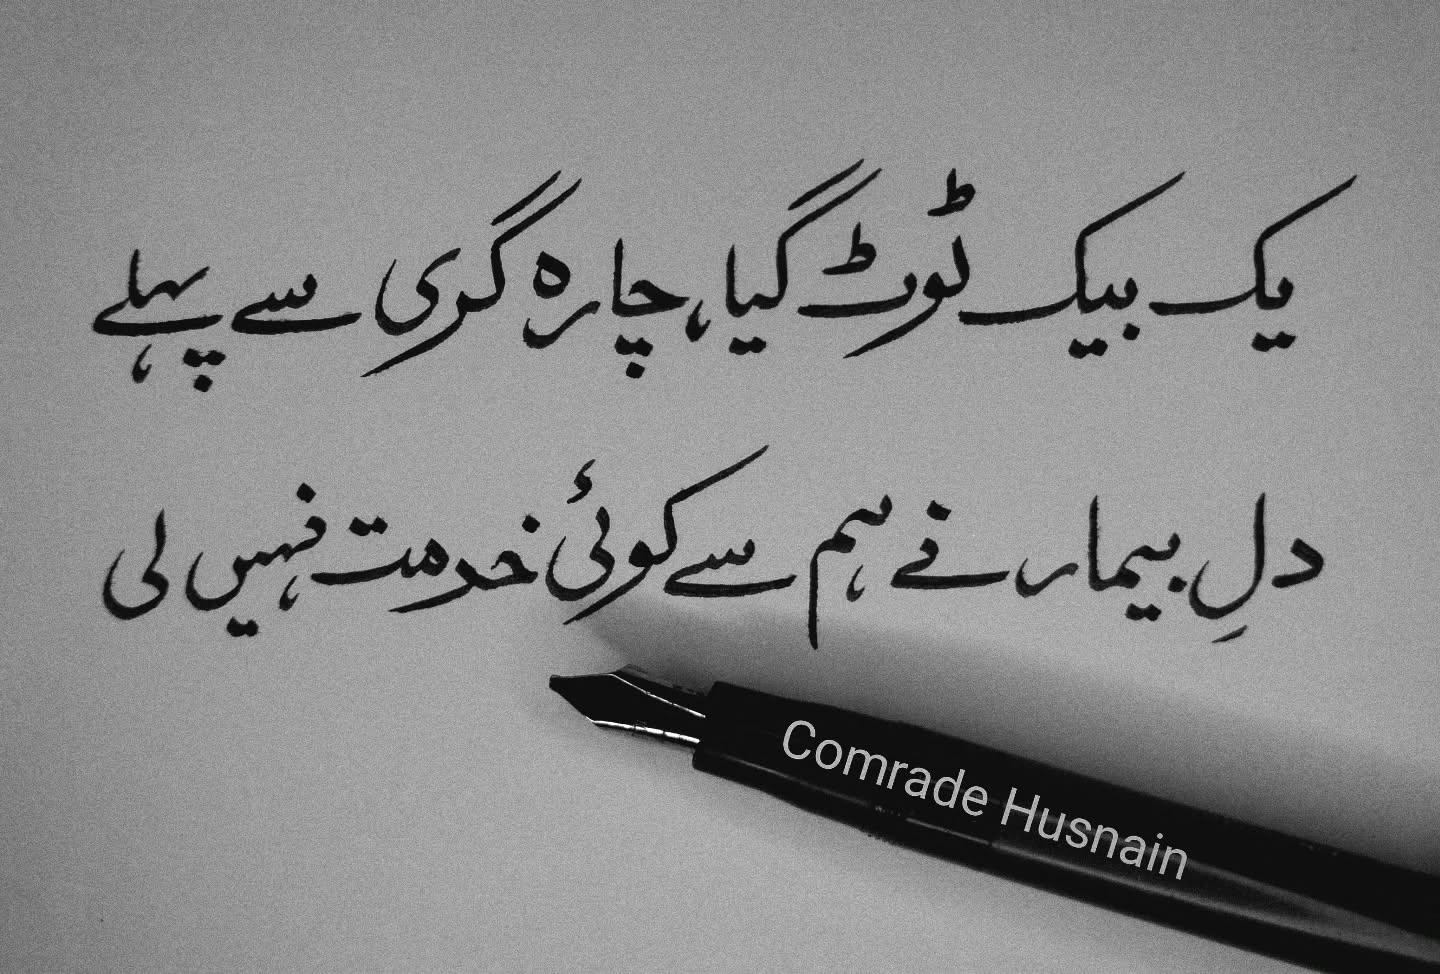 یک بیک ٹوٹ گیا، چارہ گری سے پہلے
دلِ بیمار نے ہم سے کوئی خدمت نہیں لی
Comrade Husnain